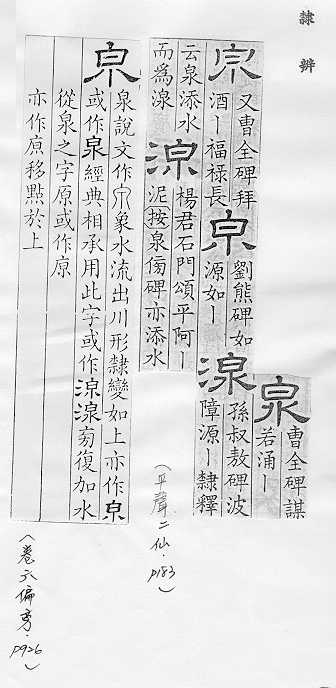 隸辨
泉
曹全碑謀
若涌丨
又曹全碑拜
酒丨福祿長
劉熊碑如
源如丨
湶
孫叔敖碑波
障源丨隸釋
云泉添水
而爲湶
湶
楊君石門頌平阿丨
泥按泉傿碑亦添水
泉說文作象水流出川形隸變如上亦作
或作泉經典相承用此字或作湶㫄復加水
從泉之字原或作
亦作移點於上
(平聲二仙·P183)
(卷六偏旁·P926)